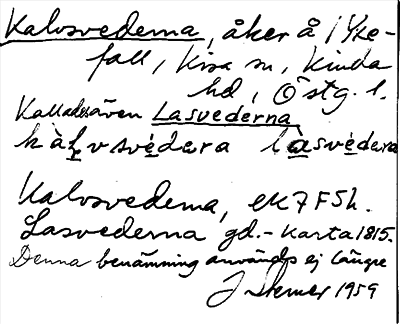 Kalvsvederna, åker å Yxe-
fall, Kisa sn, Kinda
hd, Östg. l.
Kallades även Lasvederna
kàlvsvédera làsvédera
Kalvsvederna, ek 7 F5h.
Lasvederna gd. - Karta 1815.
Denna benämning används ej längre
1959